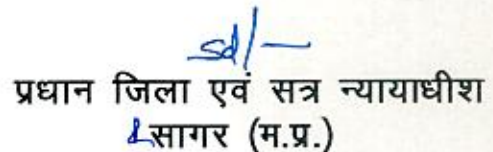 sd/-
प्रधान जिला एवं सत्र न्यायाधीश
सागर (म.प्र.)